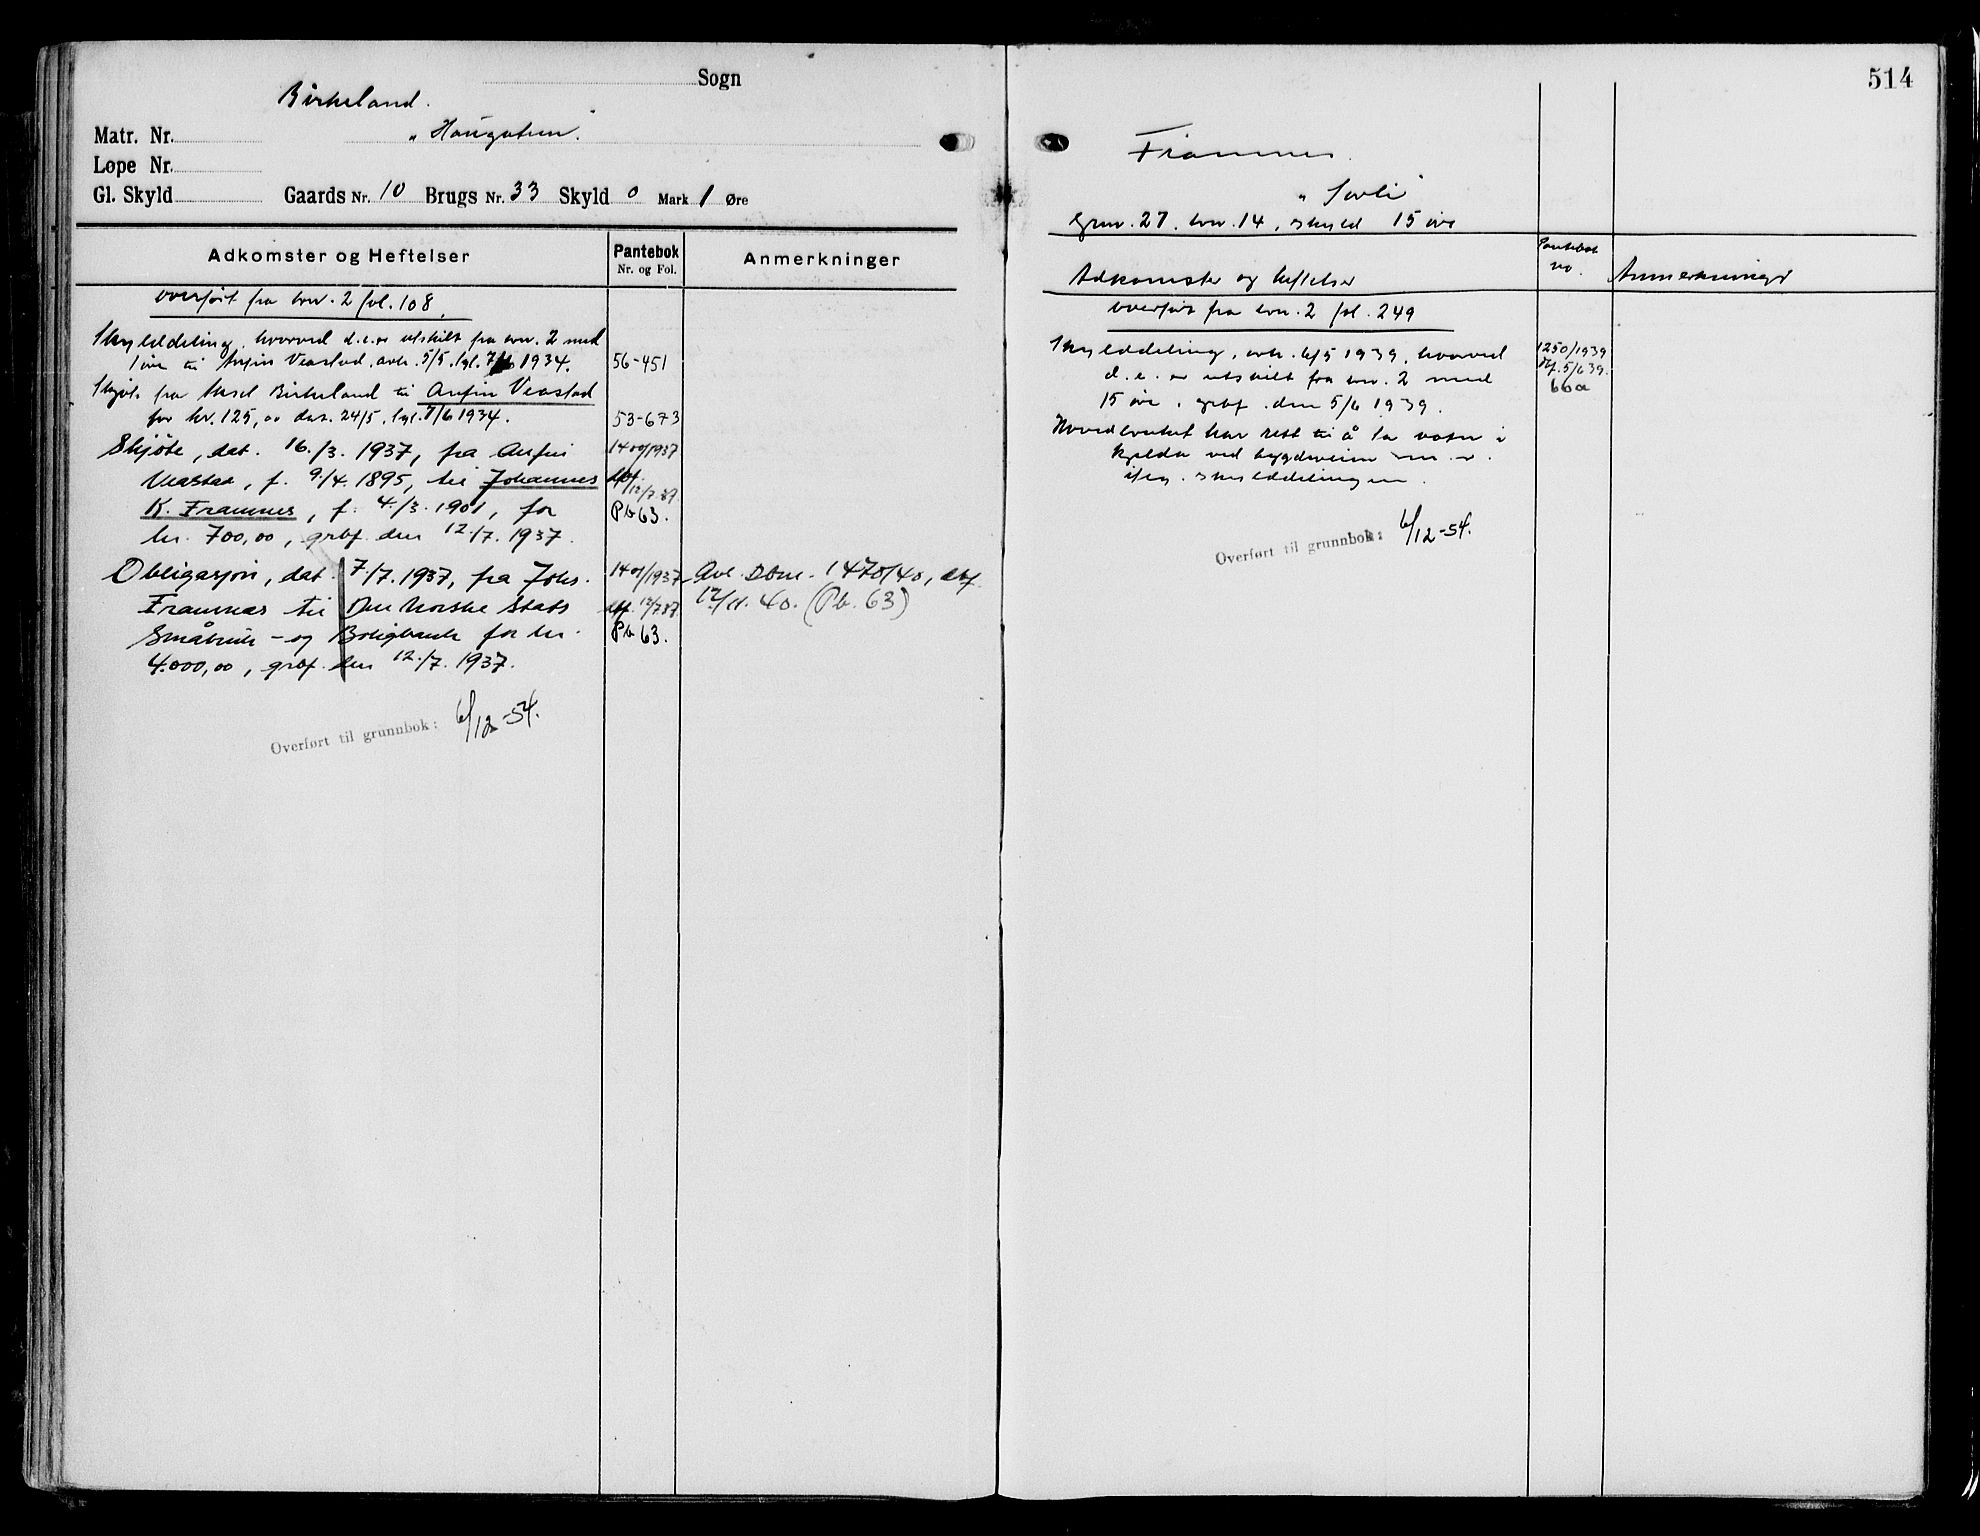 Sogn
Birkeland.
Matr. Nr. "Haugatun".
Løpe Nr.
Gl. Skyld Gaards Nr. 10 Brugs Nr. 33 Skyld 0 Mark 1 Øre
Adkomster og Heftelser Pantebok Nr. og Fol. Anmerkninger
overført fra bnr. 2 fol. 108.
Skylddeling, hvorved d.e. er utskilt fra bnr. 2 med
1 øre til Anfin Veastad. avh. 5/5. tgl. 7/6 1934. 56-451
Skjøte fra Aksel Birkeland til Anfin Veastad
for kr. 125,00 dat. 24/5. tgl. 7/6 1934. 53-673
Skjøte, dat. 16./3. 1937, fra Anfin 1400/1937
Veastad, f. 9/4. 1895, til Johannes dbf. 12/7.37
K. Framnes, f. 4./3. 1901, for Pb 63.
kr. 700,00, grbf. den 12./7. 1937.
Obligasjon, dat. 7./7. 1937, fra Johs. 1401/1937 Avl. Dbnr. 1470/40, dbf.
Framnes til Den Norske Stats dbf. 12/7 37 12/11. 40. (Pb. 63)
Småbruk- og Boligbank for kr. Pb 63.
4.000,00, grbf. den 12./7. 1937.
Overført til grunnbok: 6/12-54.
514
Framnes.
"Solli"
Gnr. 27. bnr. 14, skyld 15 øre
Adkomster og heftelser Pantebok no. Anmerkninger
overført fra bnr. 2 fol. 249
Skylddeling, avh. 6/5 1939, hvorved 1250/1939
d.e. er utskilt fra bnr. 2 med dbf. 5/6 39.
15 øre, grbf. den 5/6 1939. 66a
Hovedbruket har rett til å ta vatn i
kjelda ved bygdeveien m.v.
iflg. skylddelingen.
Overført til grunnbok: 6/12-54.